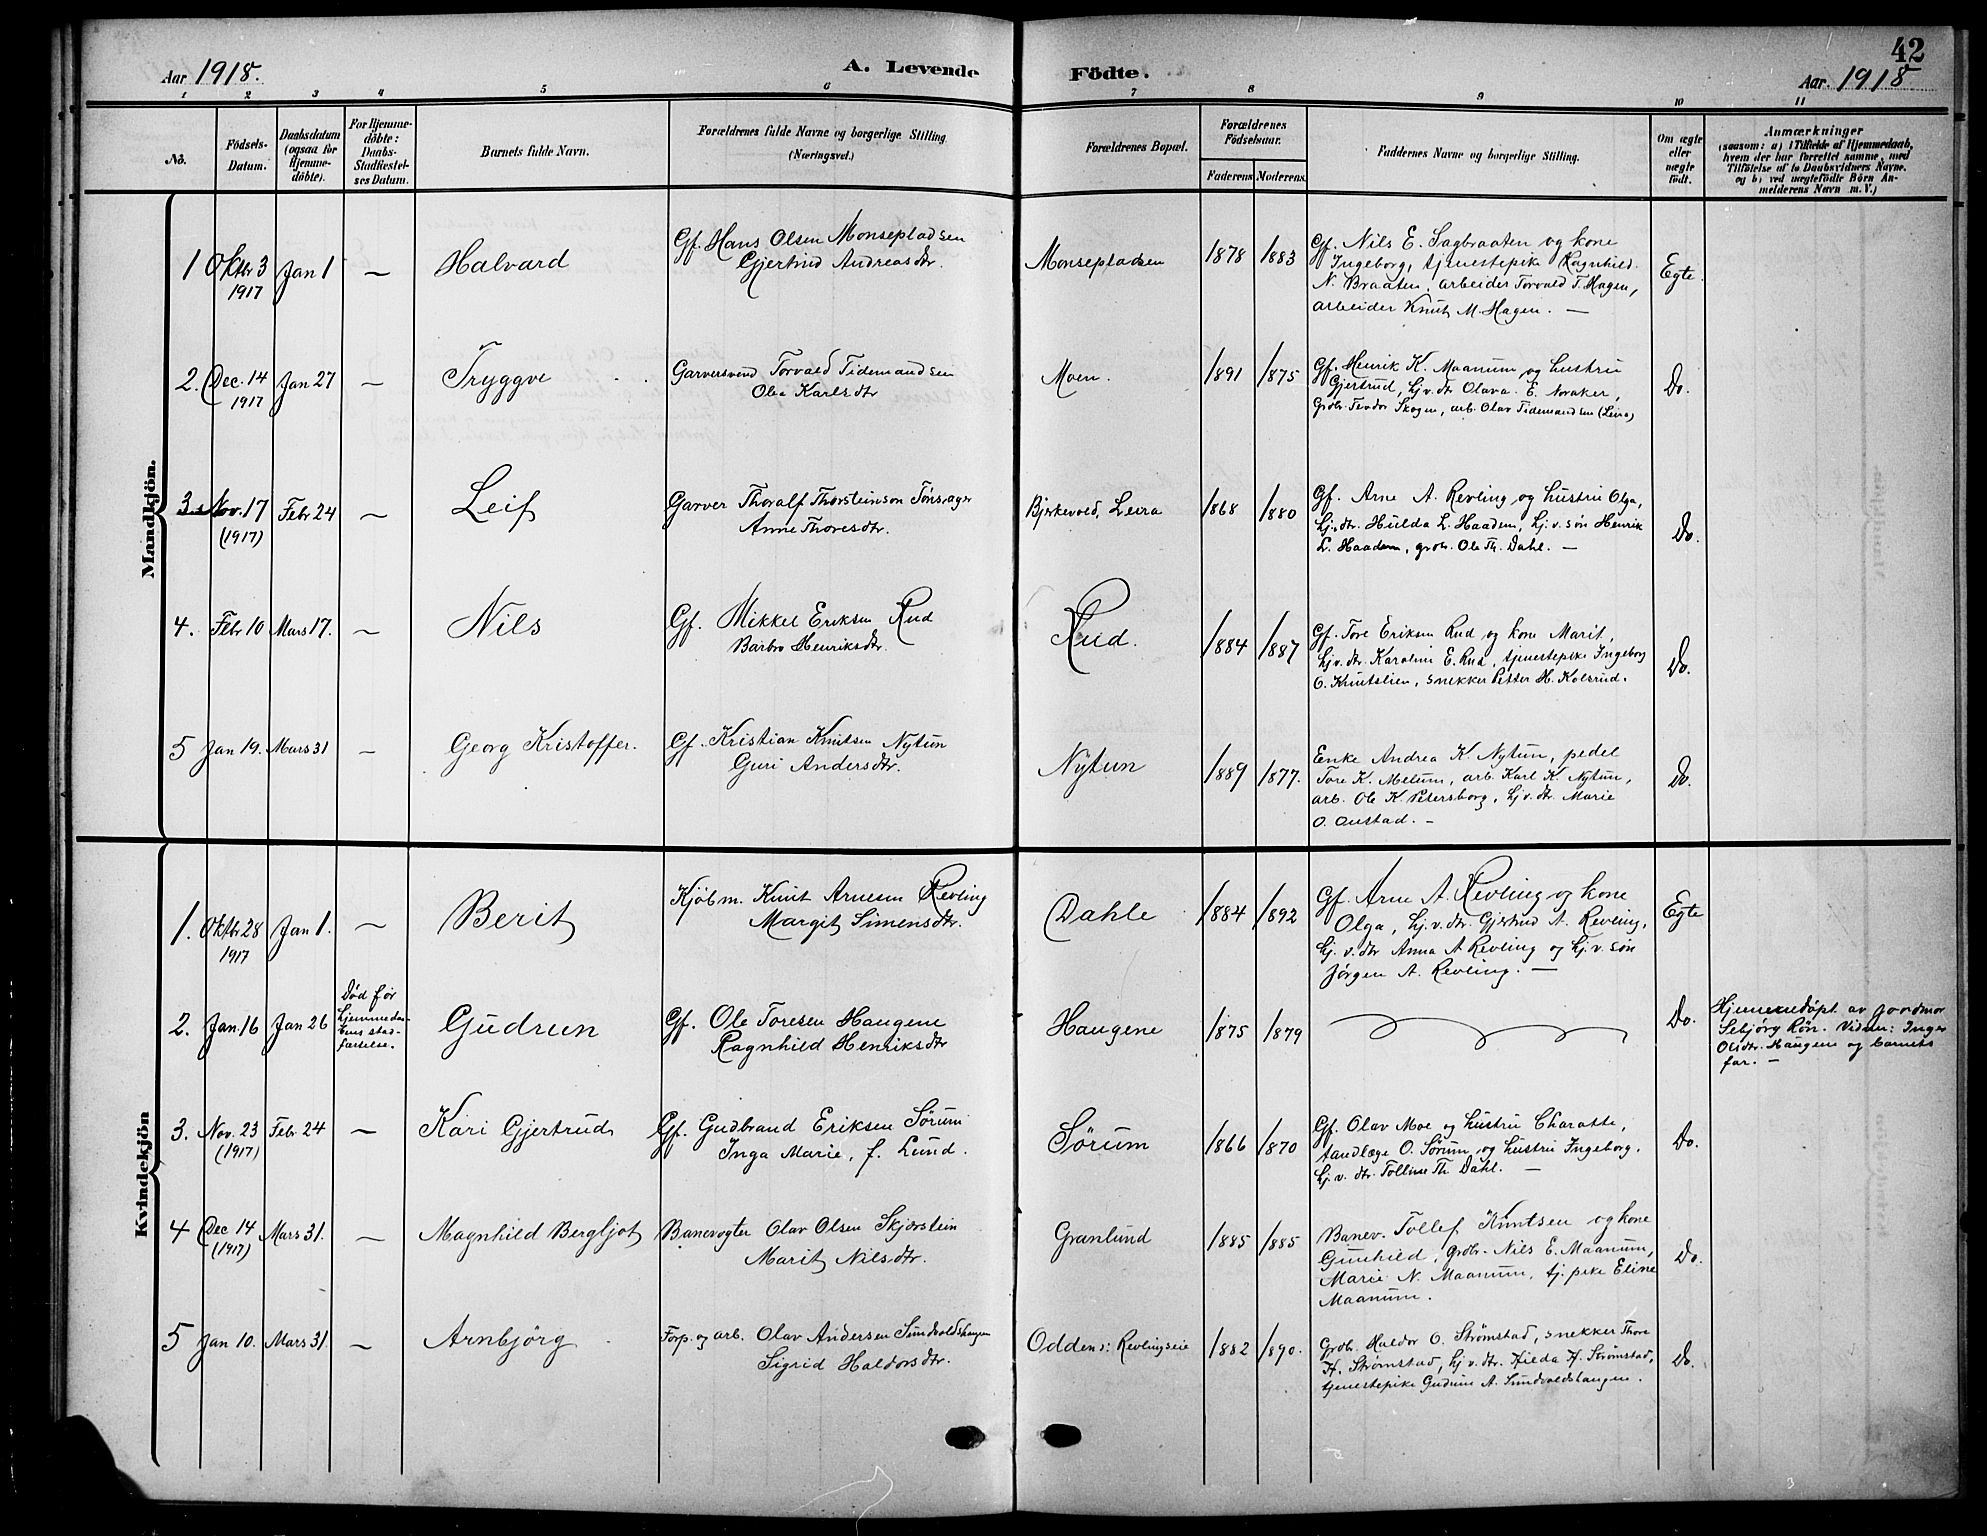 42
Aar 1918.
A. Levende Födte.
Aar 1918
1 2 3 4 5 6 7 8 9 10 11
No.
Födsels-
Datum.
Daabsdatum
(ogsaa for
Hjemme-
döbte).
For Hjemme-
döbte:
Daabs-
Stadfestel-
ses Datum.
Barnets fulde Navn.
Forældrenes fulde Navne og borgerlige Stilling
(Næringsvei.)
Forældrenes Bopæl.
Forældrenes
Födselsaar.
Faderens
Moderens.
Faddernes Navne og borgerlige Stilling.
Om ægte
eller
uægte
födt.
Anmærkninger
(saasom: a) i Tilfælde af Hjemmedaab,
hvem der har forrettet samme, med
Tilföielse af to Daabsvidners Navne.
og b) ved uægtefödte Börn An-
melderens Navn m. V.)
Mandkjön.
1 Oktbr 3
1917
Jan 1
—
Halvard
Gf. Hans Olsen Monsepladsen
Gjertrud Andreasdtr.
Monsepladsen
1878
1883
Gf. Nils E. Sagbraaten og kone
Ingeborg, tjenestepike Ragnhild
N. Braaten, arbeider Torvald T. Hagen,
arbeider Knut M. Hagen. —
Egte
2. Dec. 14
1917
Jan 27
—
Tryggve
Garversvend Torvald Tidemandsen
Olea Karlsdtr
Moen.
1891
1875
Gf. Henrik K. Maanum og hustru
Gjertrud, hj.v.dtr Olava E. Noraker,
Grdbr. Teodor Skogen, arb. Olav Tidemandsen (Leira)
Do.
3. Nov. 17
(1917)
Febr 24
—
Leif
Garver Thoralf Thorsteinson Tönsager
Anne Thoresdtr.
Bjerkevold, Leira
1868
1880
Gf. Arne A. Revling og hustru Olga,
hj.v.dtr. Hulda L. Haadem, hj.v. søn Henrik
L. Haadem, grdbr. Ole Th. Dahl. —
Do.
4. Febr 10
Mars 17.
—
Nils
Gf. Mikkel Eriksen Rud
Barbro Henriksdtr.
Rud.
1884
1887
Gf. Tore Eriksen Rud og kone Marit,
hj.v.dtr. Karoline E. Rud, tjenestepike Ingeborg
O. Knutslien, snekker Petter H. Kolsrud.
Do.
5 Jan 19.
Mars 31
—
Georg Kristoffer.
Gf. Kristian Knutsen Nytun
Guri Andersdtr.
Nytun
1889
1877.
Enke Andrea K. Nytun, pedel
Tore K. Melum, arb. Karl K. Nytun,
arb. Ole K. Petersborg, hj.v.dtr. Marie
O. Onstad. —
Do.
Kvindekjön
1. Oktbr 28
1917
Jan 1.
—
Berit
Kjøbm. Knut Arnesen Revling
Margit Simensdtr.
Dahle
1884
1892
Gf. Arne A. Revling og kone
Olga, hj.v.dtr. Gjertrud A. Revling,
hj.v.dtr Anna A Revling og hj.v. søn
Jørgen A. Revling. —
Egte
2. Jan. 16
Jan 26
Død før
hjemmedaa-
bens stad-
fæstelse.
Gudrun
Gf. Ole Toresen Haugene
Ragnhild Henriksdtr
Haugene
1875
1879
Do.
Hjemmedöpt av jordmor
Sebjörg Rön. Vidner: Inger
Olsdtr. Haugene og barnets
far. —
3. Nov. 23
(1917)
Febr 24
—
Kari Gjertrud
Gf. Gudbrand Eriksen Sørum
Inga Marie, f. Lund.
Sørum
1866
1870
Gf. Olav Moe og hustru Charotte,
tandlæge O. Sørum og hustru Ingeborg,
hj.v.dtr. Tolline Th. Dahl. —
Do.
4 Dec 14
(1917)
Mars 31.
—
Magnhild Bergljot
Banevogter Olav Olsen Skjerstein
Marit Nilsdtr.
Granlund
1885
1885
Banev. Tollef Knutsen og kone
Gunhild, Grdbr. Nils E. Maanum,
Marie N. Maanum, tj.pike Eline
Maanum.
Do.
5 Jan 10.
Mars 31.
—
Arnbjörg
Forp. og arb. Olav Andersen Sundvoldshaugen
Sigrid Haldorsdtr.
Odden: Revlingseie
1882
1890.
Grdbr. Haldor O. Strömstad, snekker Thore
H. Strömstad, hj.v.dtr. Hilda H. Strömstad,
tjenestepike Gudrun A. Sundvoldshaugen.
Do.